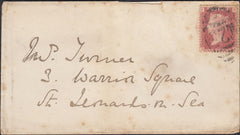 Mrs. Turner
3. Warrior Square
St. Leonards-on-Sea